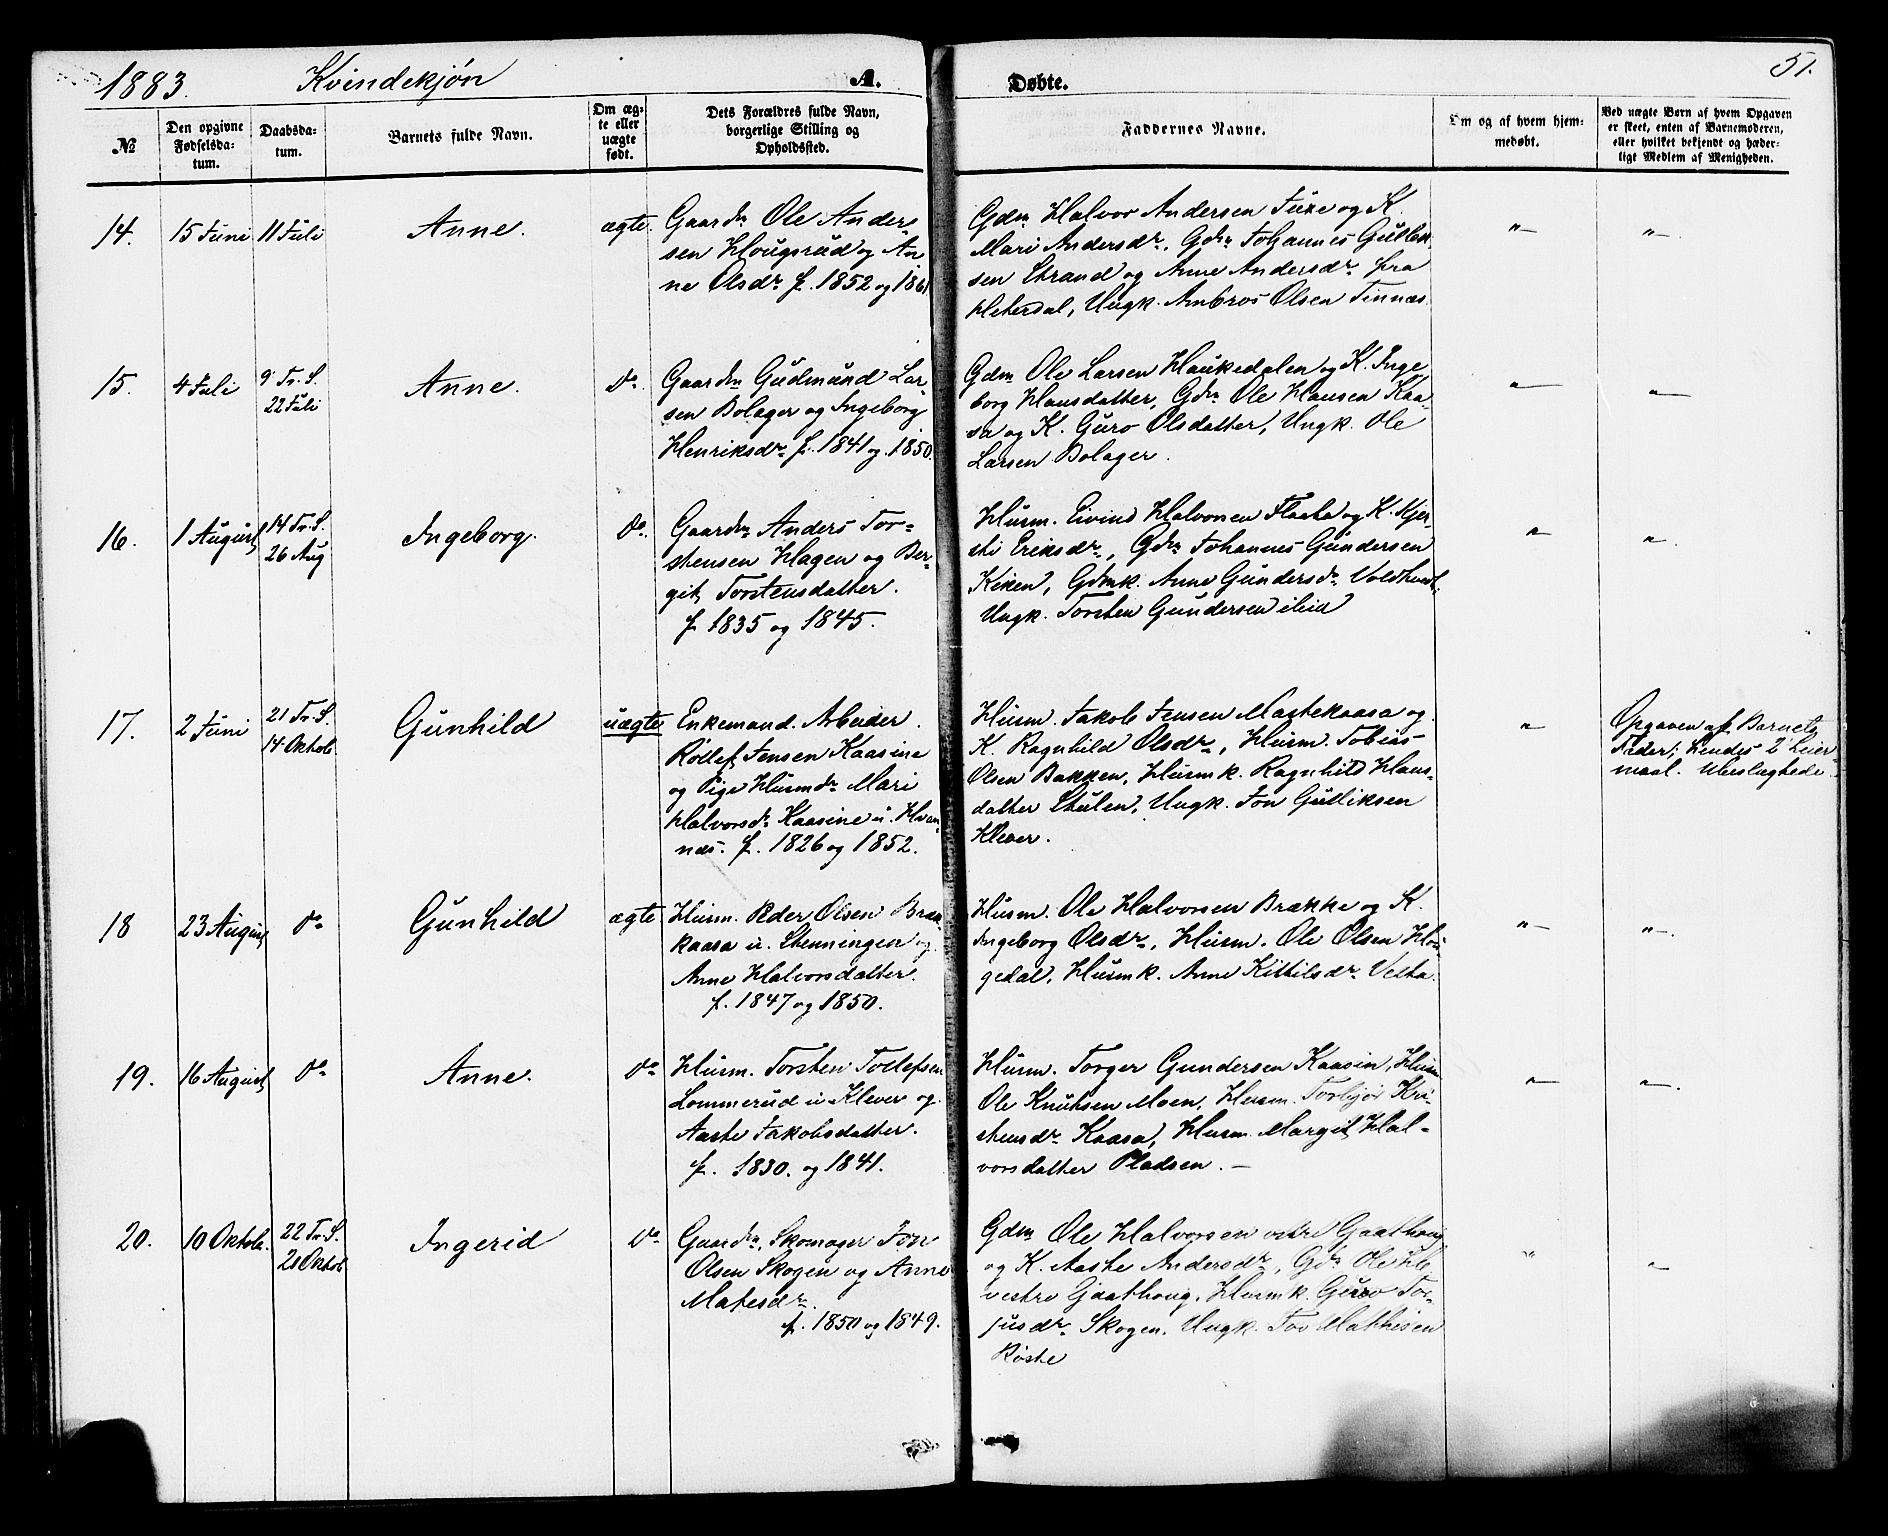 1883. Kvindekjøn A. Døbte. 51.
№
Den opgivne Fødselsda-tum.
Daabsda-tum.
Barnets fulde Navn.
Om æg-te eller uægte født.
Dets Forældres fulde Navn, borgerlige Stilling og Opholdssted.
Faddernes Navne.
Om og af hvem hjem-medøbt.
Ved uægte Børn af hvem Opgaven er skeet, enten af Barnemoderen, eller hvilket bekjendt og hæder-ligt Medlem af Menigheden.
14. 15 Juni 11 Juli Anne. ægte.
Gaardm Ole Anders
sen Hougsrud og An
ne Olsdr f. 1852 og 1861
Gdm Halvor Andersen Fuxe og K.
Mari Andersdr, Gdm Johannes Gullik
sen Strand og Anne Andersdr fra
Hiterdal, Ungk. Ambros Olsen Tinnæs.
"— "—
15. 4 Juli 9 Tr. S. 22 Juli Anne. do.
Gaardm Gudmund Lar
sen Bolager og Ingeborg
Henriksdr f. 1841 og 1850.
Gdm Ole Larsen Haukedalen og K. Inge
borg Hansdatter, Gdm Ole Hansen Kaa-
sa og K. Guro Olsdatter, Ungk. Ole
Larsen Bolager.
"— "—
16. 1 August 14 Tr. S. 26 Aug Ingeborg. do.
Gaardm Anders Tor-
stensen Hagen og Ber-
git Torstensdatter.
f. 1835 og 1845.
Husm. Eivind Halvorsen Flaata og K. Kjer-
sti Eriksdr, Gdm Johannes Gundersen
Kiken, Gdmk. Anne Gundersdr
Ungk. Torsten Gundersen ibid
"— "—
17. 2 Juni 21 Tr. S. 14 Oktob. Gunhild uægte
Enkemand. Arbeider.
Rollef Jensen Kaasine
og Pige Husmdr Mari
Halvorsdr Kaasine u.
næs. f. 1826 og 1852.
Husm. Jakob Jensen Mastekaasa og
K. Ragnhild Olsdr, Husm. Tobias
Olsen Bakken, Husmk. Ragnhild Hans-
datter Stulen, Ungk. Jon Gulliksen
Klever.
"
Opgaven af Barnets
Fader; hendes 2 Leier-
maal. Ubeslægtede.
18 23 August do Gunhild ægte
Husm. Peder Olsen Bræk-
kaasa u. Stenningen og
Anne Halvorsdatter.
f. 1847 og 1850.
Husm. Ole Halvorsen Brække og K.
Ingeborg Olsdr, Husm. Ole Olsen Hou
gedal, Husmk. Anne Kittilsdr Vesta.
"— "—
19. 16 August do Anne. do
Husm. Torsten Tollefsen
Lommerud u Klever og
Aaste Jakobsdatter.
f. 1830. og 1841.
Husm. Torger Gundersen Kaasin, Husm
Ole Knutsen Moen, Husm. Torbjør Kri-
stensdr Kaasa, Husm. Margit Hal-
vorsdatter Pladsen. —
"— "—
20. 10 Oktob. 22 Tr. S. 21 Oktob Ingerid do
Gaardm, Skomager Jon
Olsen Skogen og Anne
Matesdr.
f. 1850 og 1849.
Gdm Ole Halvorsen vestre Gaathoug
og K. Aaste Andersdr, Gdm Ole
vestre Gaathoug, Husmk. Guro Tor-
jusdr Skogen. Ungk. Tov Mathisen
Røste
" "—